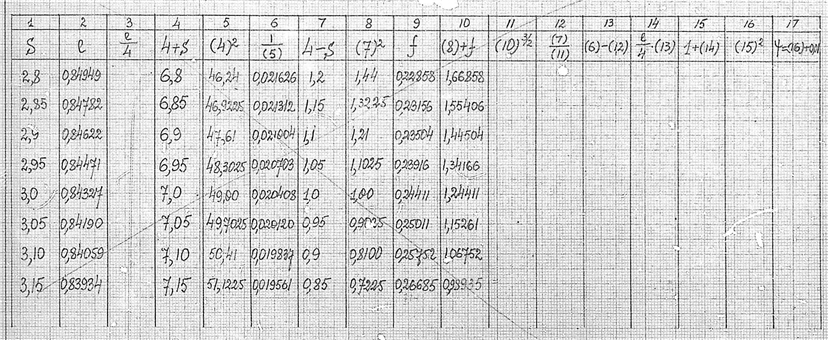 1 2 3 4 5 6 7 8 9 10 11 12 13 14 15 16 17
S e e/4 4+S (4)² 1/(5) 4-S (7)² f (8)+f (10)^3/2 (7)/(11) (6)-(12) e/4·(13) 1+(14) (15)²
2,8 0,84949 6,8 46,24 0,021626 1,2 1,44 0,22858 1,66858
2,85 0,84782 6,85 46,9225 0,021312 1,15 1,3225 0,23156 1,55406
2,9 0,84622 6,9 47,61 0,021004 1,1 1,21 0,23504 1,44504
2,95 0,84471 6,95 48,3025 0,020703 1,05 1,1025 0,23916 1,34166
3,0 0,84327 7,0 49,00 0,020408 1,0 1,00 0,24411 1,24411
3,05 0,84190 7,05 49,7025 0,020120 0,95 0,25011 1,15261
3,10 0,84059 7,10 50,41 0,019837 0,9 0,8100 0,25752 1,06752
3,15 0,83934 7,15 51,1225 0,019561 0,85 0,7225 0,26685 0,98935